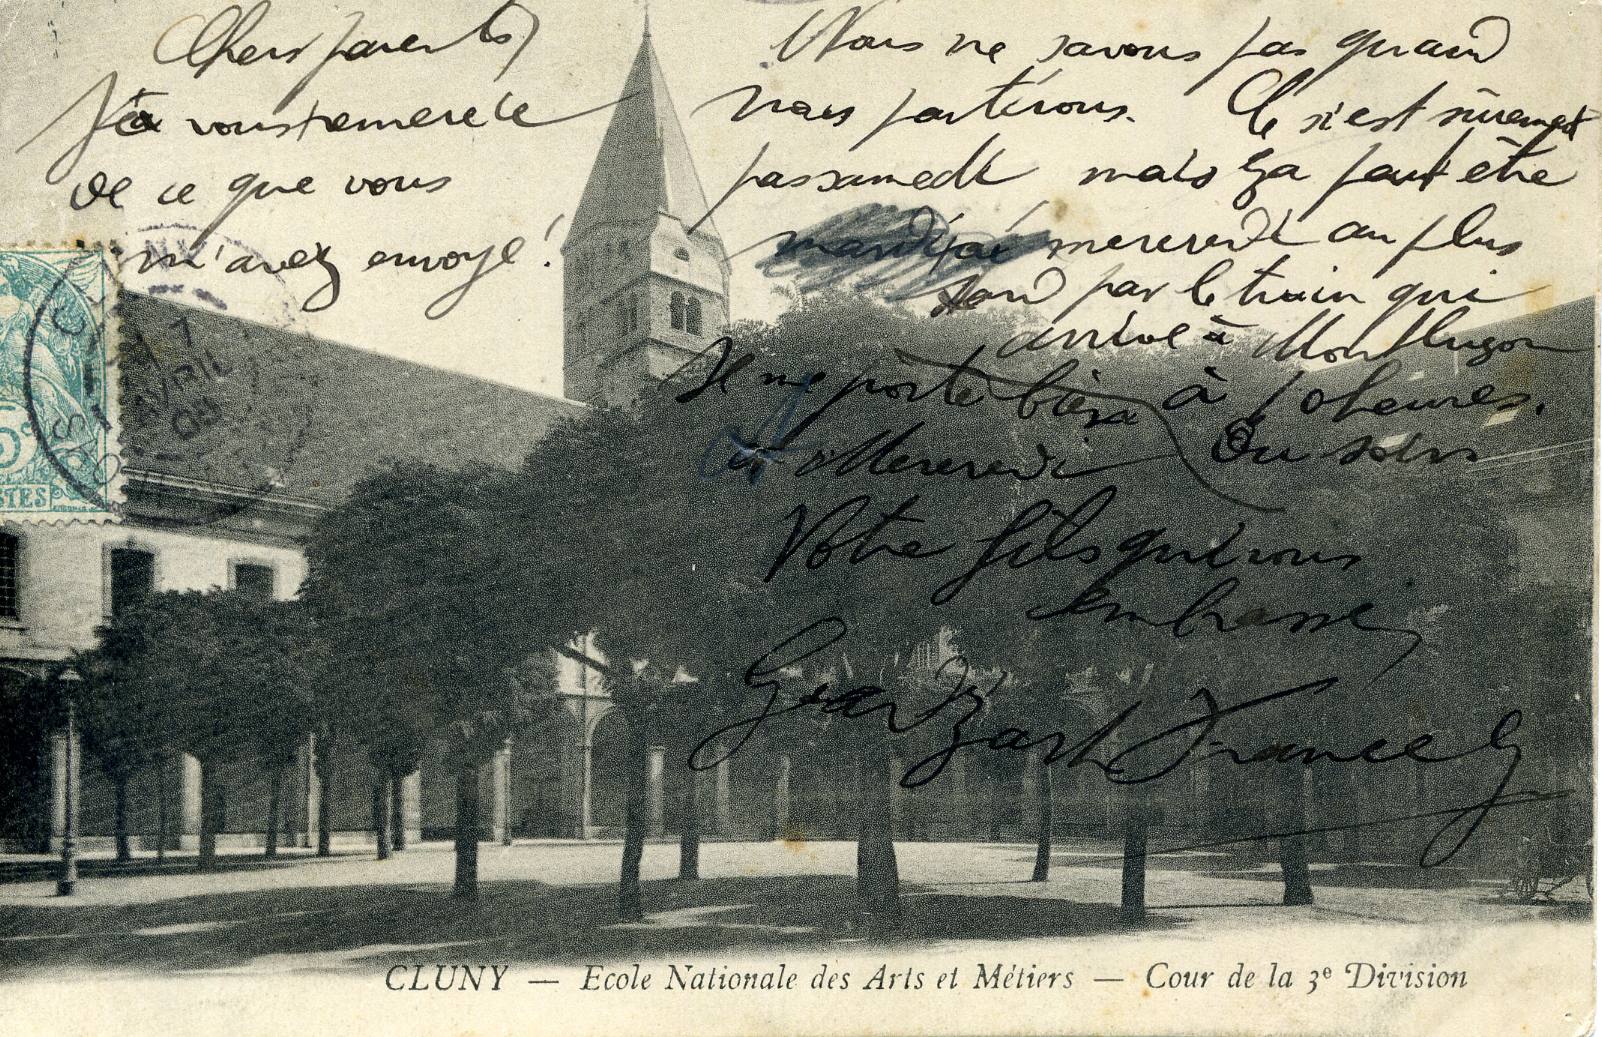 Chers parents
Je vous remercie
de ce que vous
m'avez envoyé !
Nous ne savons pas quand
nous partirons. Ce n'est sûrement
pas samedi mais ça peut être
mercredi au plus
tard par le train qui
arrive à Montluçon
à 10 heures.
Je me porte bien
Mercredi Ou soir
Votre fils qui vous
embrasse
CLUNY
AVRIL
5c
POSTES
CLUNY — Ecole Nationale des Arts et Métiers — Cour de la 3e Division